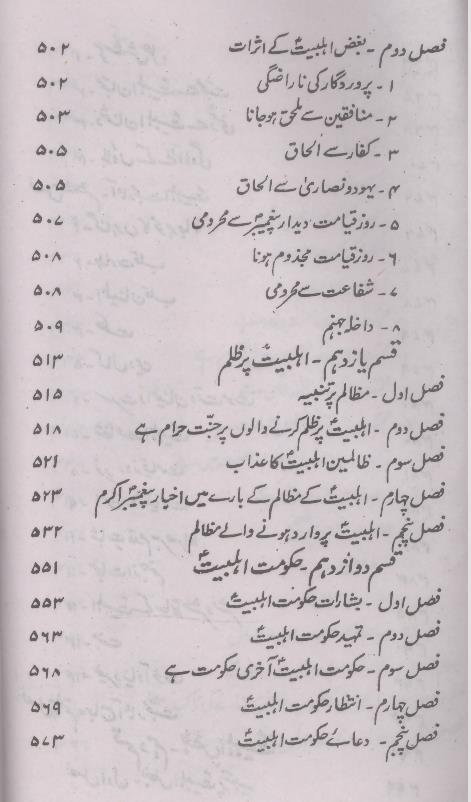 فصل دوم - بغض اہلبیتؑ کے اثرات ۵۰۲
۱ - پروردگار کی ناراضگی ۵۰۲
۲ - منافقین سے ملحق ہو جانا ۵۰۳
۳ - کفار سے الحاق ۵۰۵
۴ - یہود و نصاریٰ سے الحاق ۵۰۵
۵ - روز قیامت دیدار پیغمبرؐ سے محرومی ۵۰۷
۶ - روز قیامت مجذوم ہونا ۵۰۸
۷ - شفاعت سے محرومی ۵۰۸
۸ - داخلہ جہنم ۵۰۹
قسم یازدہم - اہلبیتؑ پر ظلم ۵۱۳
فصل اول - مظالم پر تنبیہ ۵۱۵
فصل دوم - اہلبیتؑ پر ظلم کرنے والوں پر جنّت حرام ہے ۵۱۸
فصل سوم - ظالمین اہلبیتؑ کا عذاب ۵۲۱
فصل چہارم - اہلبیتؑ کے مظالم کے بارے میں اخبار پیغمبرؐ اکرم ۵۲۳
فصل پنجم - اہلبیتؑ پر وارد ہونے والے مظالم ۵۳۲
قسم دوازدہم - حکومت اہلبیتؑ ۵۵۱
فصل اول - بشارات حکومت اہلبیتؑ ۵۵۳
فصل دوم - تمہید حکومت اہلبیتؑ ۵۶۳
فصل سوم - حکومت اہلبیتؑ آخری حکومت ہے ۵۶۸
فصل چہارم - انتظار حکومت اہلبیتؑ ۵۶۹
فصل پنجم - دعائے حکومت اہلبیتؑ ۵۷۳